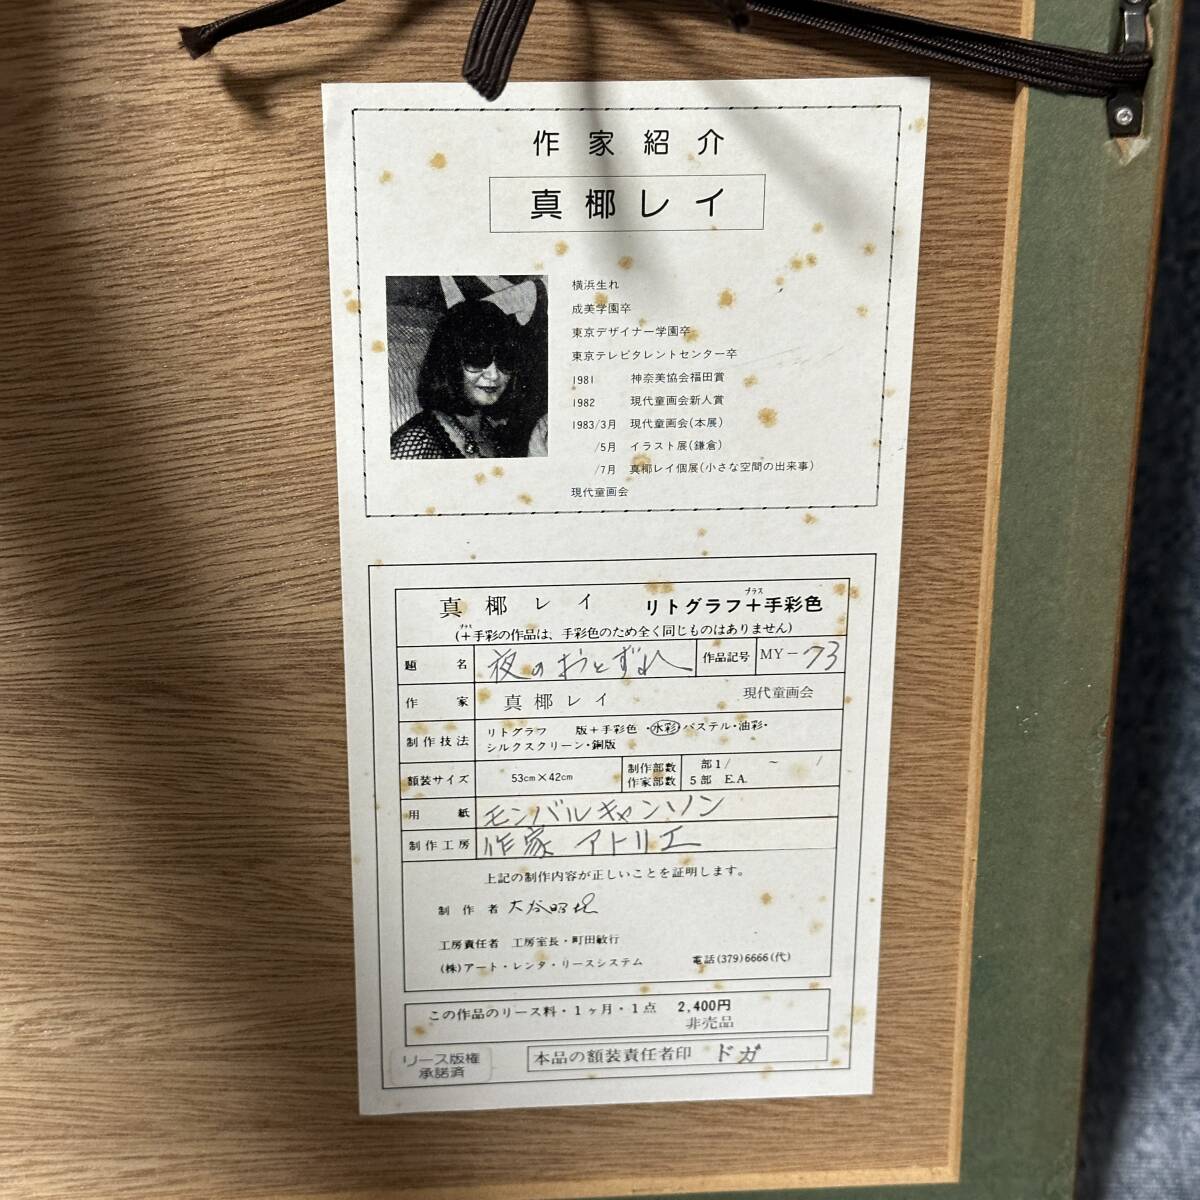 作家紹介
真椰レイ
横浜生れ
成美学園卒
東京デザイナー学園卒
東京テレビタレントセンター卒
1981 神奈美協会福田賞
1982 現代童画会新人賞
1983/3月 現代童画会(本展)
/5月 イラスト展(鎌倉)
/7月 真椰レイ個展(小さな空間の出来事)
現代童画会
真椰レイ リトグラフ+手彩色
プラス
(+手彩の作品は、手彩色のため全く同じものはありません)
プラス
題名 夜のおとずれ 作品記号 MY-73
作家 真椰レイ 現代童画会
制作技法 リトグラフ 版+手彩色・水彩・パステル・油彩・
シルクスクリーン・銅版
額装サイズ 53cm×42cm 制作部数 部1/ ~ /
作家部数 5部 E.A.
用紙 モンバルキャンソン
制作工房 作家 アトリエ
上記の制作内容が正しいことを証明します。
制作者
工房責任者 工房室長・町田敏行
(株)アート・レンタ・リースシステム 電話(379)6666(代)
この作品のリース料・1ヶ月・1点 2,400円
非売品
リース版権
承諾済
本品の額装責任者印 ドガ